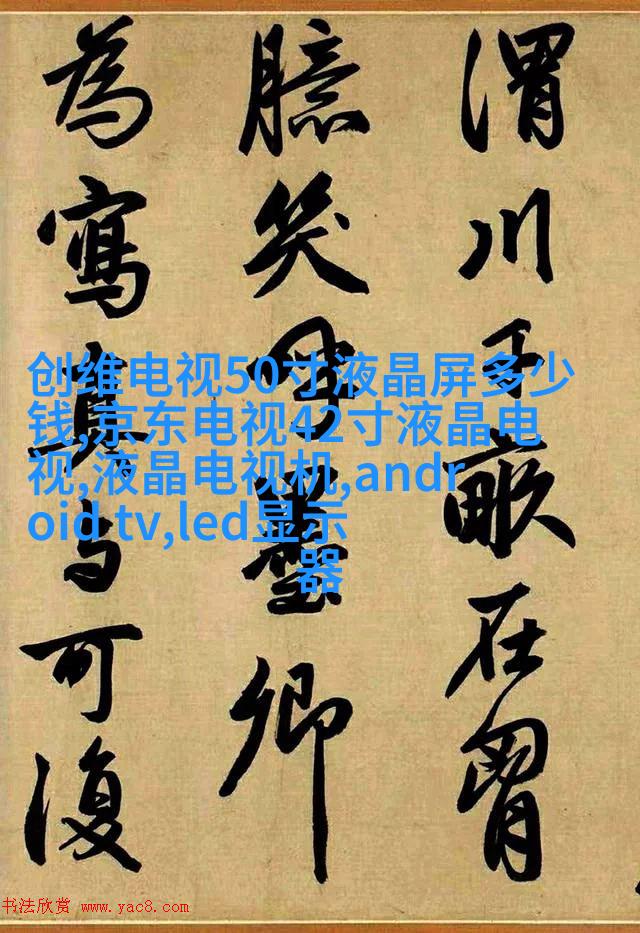 渭川千畝在胃
臆笑呼墨卿
為寫真与可復
创维电视50寸液晶屏多少
钱,京东电视42寸液晶电
视,液晶电视机,andr
oid tv,led显示
器
书法欣赏 www.yac8.com